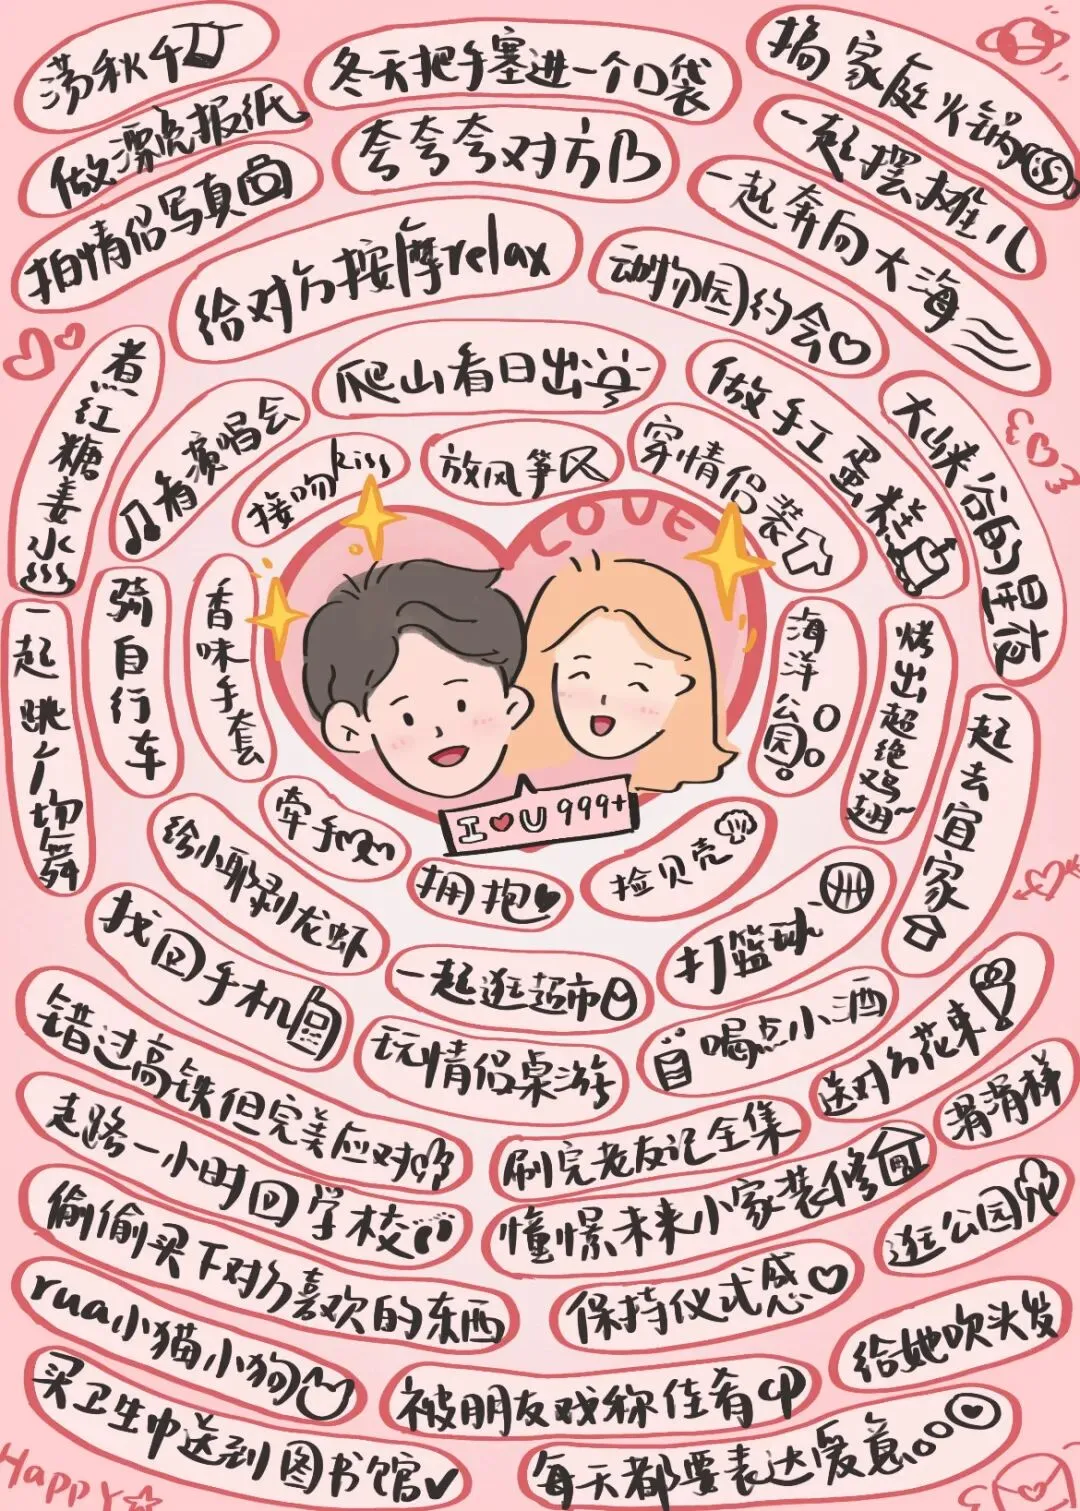 荡秋千
冬天把手塞进一个口袋
搞家庭火锅
做漂亮报纸
夸夸夸对方
一起摆摊儿
拍情侣写真
一起奔向大海
给对方按摩relax
动物园约会
爬山看日出
做手工蛋糕
大峡谷的星夜
煮红糖姜水
看演唱会
接吻kiss
放风筝
穿情侣装
LOVE
一起跳个一场舞
骑自行车
香味手套
海洋公园
烤出超绝鸡翅~
一起去宜家
I ♥ U 999+
牵手
拥抱
捡贝壳
给小耶剥龙虾
打篮球
找回手机
一起逛超市
玩情侣桌游
喝点小酒
送对方花束
错过高铁但完美应对
刷完老友记全集
滑滑梯
走路一小时回学校
憧憬未来小家装修
逛公园
偷偷买下对方喜欢的东西
保持仪式感
rua小猫小狗
给她吹头发
被朋友戏称佳肴
买卫生巾送到图书馆
每天都要表达爱意
Happy